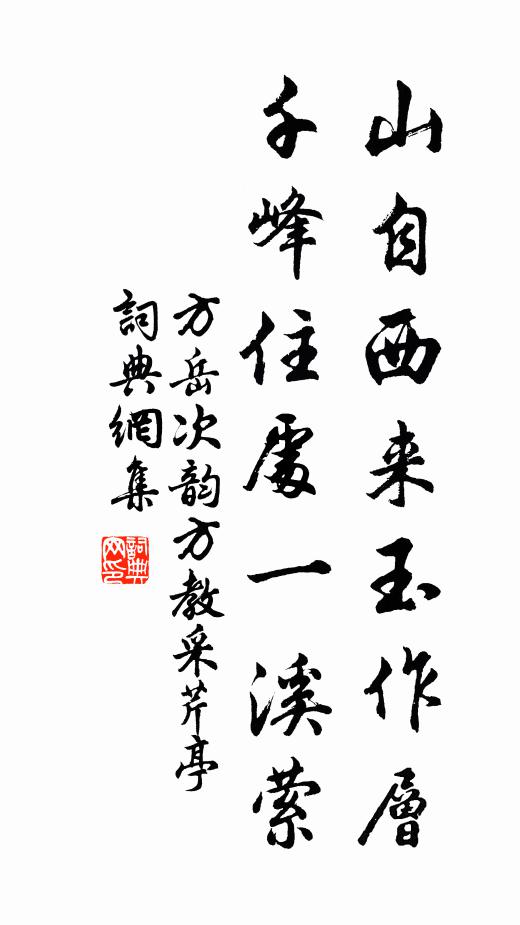 山自西来玉作層
千峰住處一溪萦
方岳次韵方教采芹亭
詞典網集
詞典网印